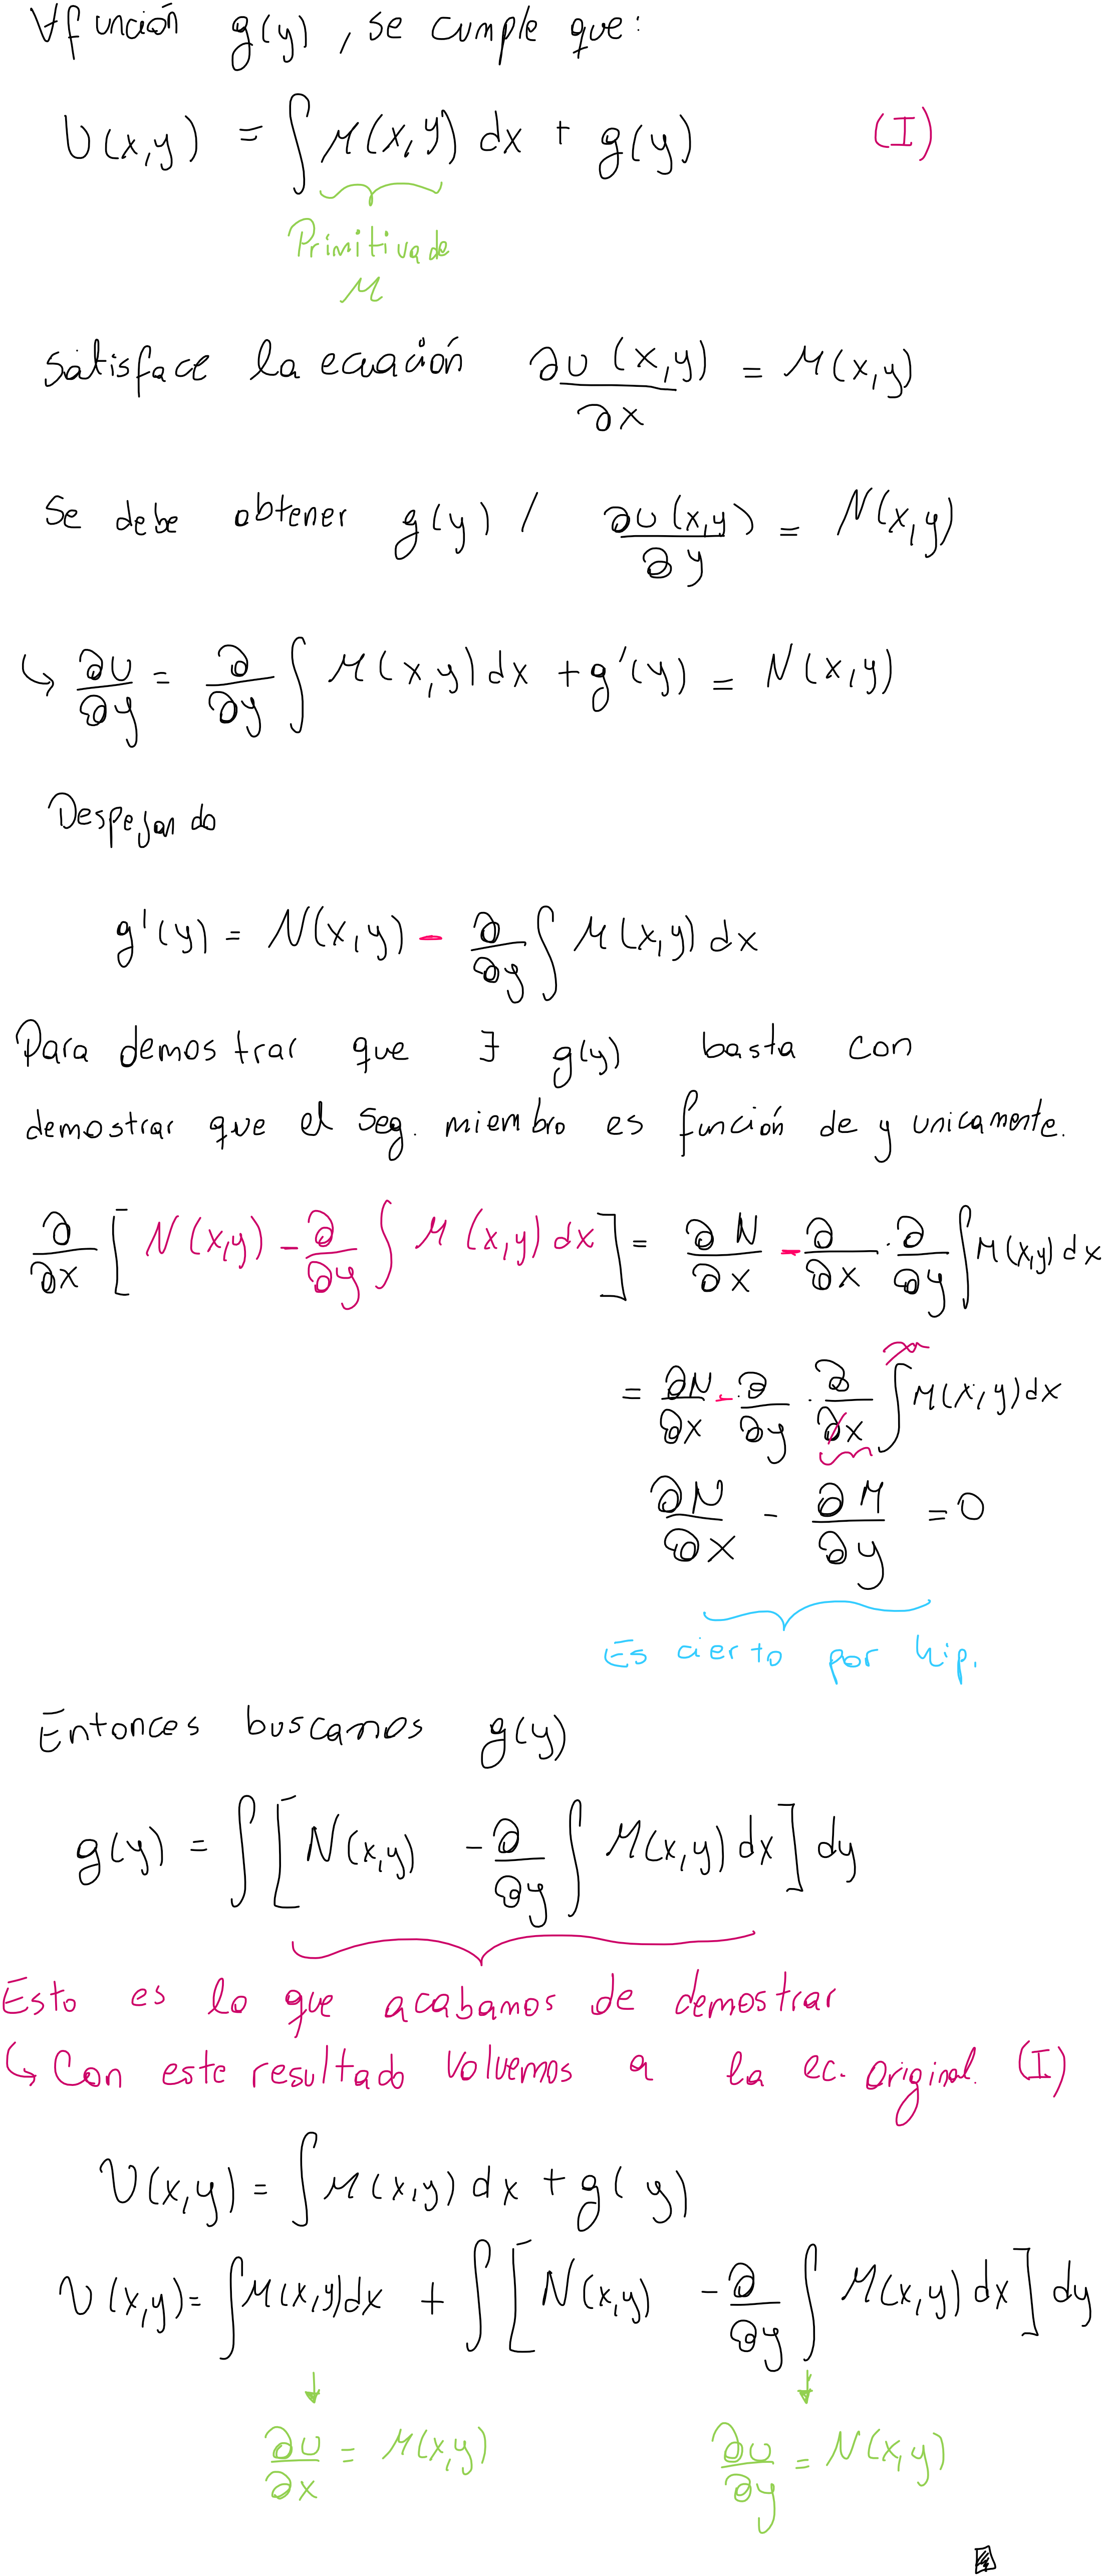 ∀función g(y), se cumple que:
U(x,y) = ∫ M(x,y) dx + g(y) (I)
Primitiva de
M
satisface la ecuación ∂U(x,y)/∂x = M(x,y)
Se debe obtener g(y) / ∂U(x,y)/∂y = N(x,y)
↳ ∂U/∂y = ∂/∂y ∫ M(x,y) dx + g'(y) = N(x,y)
Despejando
g'(y) = N(x,y) - ∂/∂y ∫ M(x,y) dx
Para demostrar que ∃ g(y) basta con
demostrar que el seg. miembro es función de y unicamente.
∂/∂x [N(x,y) - ∂/∂y ∫ M(x,y) dx] = ∂N/∂x - ∂/∂x · ∂/∂y ∫ M(x,y) dx
= ∂N/∂x - ∂/∂y · ∂/∂x ∫ M(x,y) dx
∂N/∂x - ∂M/∂y = 0
Es cierto por hip.
Entonces buscamos g(y)
g(y) = ∫ [N(x,y) - ∂/∂y ∫ M(x,y) dx] dy
Esto es lo que acabamos de demostrar
↳ Con este resultado volvemos a la ec. original. (I)
U(x,y) = ∫ M(x,y) dx + g(y)
U(x,y) = ∫ M(x,y) dx + ∫ [N(x,y) - ∂/∂y ∫ M(x,y) dx] dy
↓ ↓
∂U/∂x = M(x,y) ∂U/∂y = N(x,y)